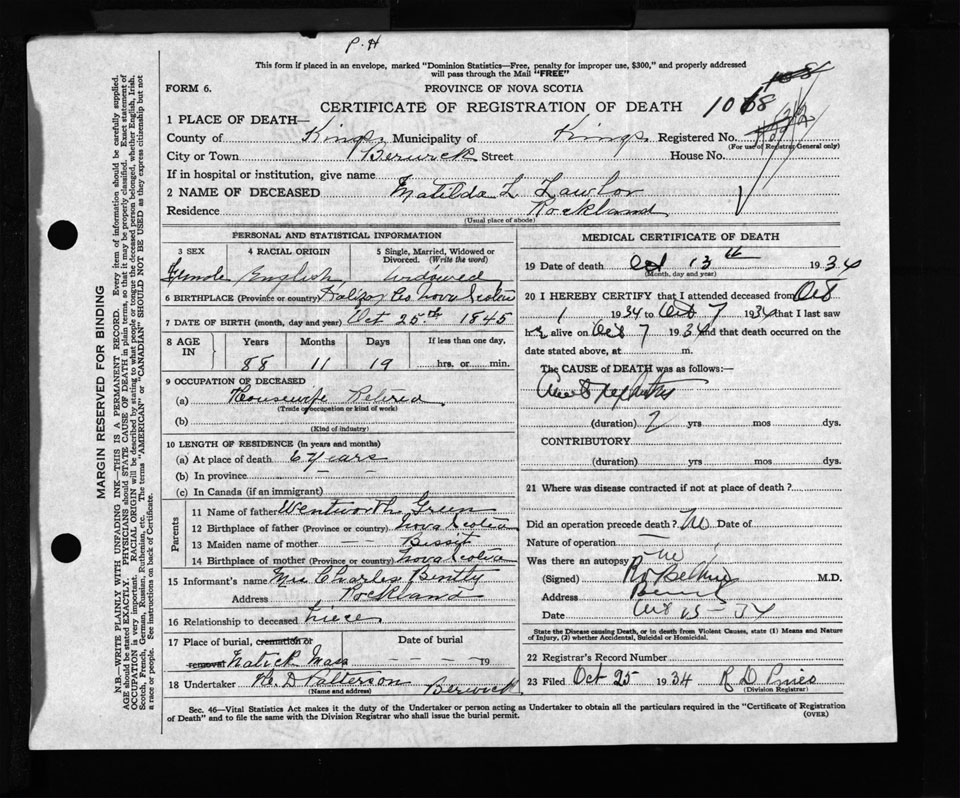 P. H
This form if placed in an envelope, marked "Dominion Statistics—Free, penalty for improper use, $300," and properly addressed
will pass through the Mail "FREE"
FORM 6.
PROVINCE OF NOVA SCOTIA
CERTIFICATE OF REGISTRATION OF DEATH
1 PLACE OF DEATH—
County of Kings Municipality of Kings Registered No.
(For use of Registrar General only)
City or Town Berwick Street House No.
If in hospital or institution, give name
2 NAME OF DECEASED Matilda L. Lawlor
Residence Rockland
(Usual place of abode)
PERSONAL AND STATISTICAL INFORMATION
3 SEX 4 RACIAL ORIGIN 5 Single, Married, Widowed or
Divorced. (Write the word)
Female English widowed
6 BIRTHPLACE (Province or country) Halifax Co Nova Scotia
7 DATE OF BIRTH (month, day and year) Oct 25th 1845
8 AGE IN Years Months Days If less than one day,
88 11 19 hrs. or min.
9 OCCUPATION OF DECEASED
(a) Housewife Retired
(Trade or occupation or kind of work)
(b)
(Kind of industry)
10 LENGTH OF RESIDENCE (in years and months)
(a) At place of death 6 years
(b) In province — —
(c) In Canada (if an immigrant)
Parents
11 Name of father Wentworth Green
12 Birthplace of father (Province or country) Nova Scotia
13 Maiden name of mother — — Bissit
14 Birthplace of mother (Province or country) Nova Scotia
15 Informant's name Mrs Charles Bently
Address Rockland
16 Relationship to deceased niece
17 Place of burial, cremation or Date of burial
removal Natick Mass — — — — 19
18 Undertaker D Patterson Berwick
(Name and address)
MEDICAL CERTIFICATE OF DEATH
19 Date of death Oct 13th 1934
(Month, day and year)
20 I HEREBY CERTIFY that I attended deceased from Oct
1 1934 to Oct 7 1934 that I last saw
her alive on Oct 7 1934 and that death occurred on
date stated above, at m.
The CAUSE of DEATH was as follows:—
(duration) 2 yrs mos dys.
CONTRIBUTORY
(duration) yrs mos dys.
21 Where was disease contracted if not at place of death?
Did an operation precede death? No Date of
Nature of operation —
Was there an autopsy No
(Signed) M.D.
Address
Date
State the Disease causing Death, or in death from Violent Causes, state (1) Means and Nature
of Injury, (2) whether Accidental, Suicidal or Homicidal.
22 Registrar's Record Number
23 Filed Oct 25 1934 R D
(Division Registrar)
Sec. 46—Vital Statistics Act makes it the duty of the Undertaker or person acting as Undertaker to obtain all the particulars required in the "Certificate of Registration
of Death" and to file the same with the Division Registrar who shall issue the burial permit. (OVER)
MARGIN RESERVED FOR BINDING
N.B.—WRITE PLAINLY WITH UNFADING INK—THIS IS A PERMANENT RECORD. Every item of information should be carefully supplied.
AGE should be stated EXACTLY. PHYSICIANS should STATE CAUSE OF DEATH in plain terms, so that it may be properly classified. Exact statement of
OCCUPATION is very important. RACIAL ORIGIN will be described by stating to what people or tongue the deceased person belonged, whether English, Irish,
Scotch, French, German, Russian, Ruthenian, etc. The terms "AMERICAN" or "CANADIAN" SHOULD NOT BE USED as they express citizenship but not
a race or people. See instructions on back of Certificate.